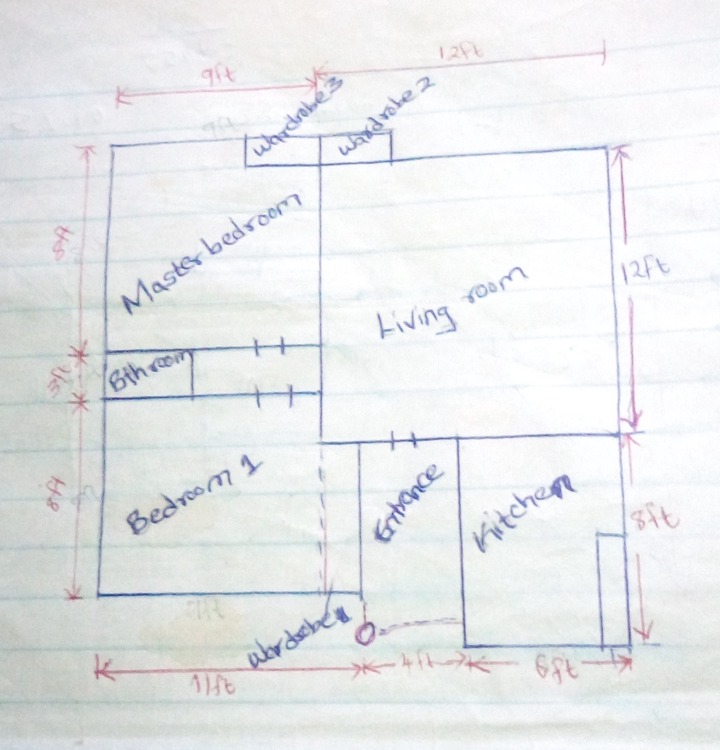 9ft
12ft
wardrobe 3
wardrobe 2
8ft
Master bedroom
12ft
Living room
3ft
Bthroom
8ft
Bedroom 1
Entrance
Kitchen
8ft
wardrobe 1
11ft
4ft
6ft